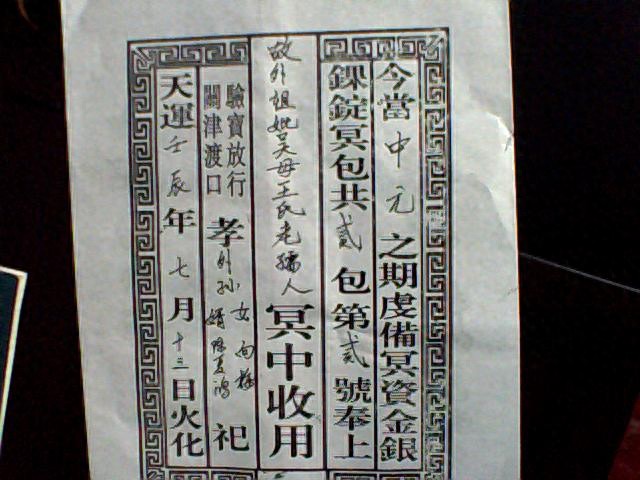 今當中元之期虔備冥資金銀
錁錠冥包共貳包第貳號奉上
故外祖妣吴母王氏老孺人冥中收用
驗寶放行
關津渡口
孝外孫女
婿
祀
天運壬辰年七月十三日火化